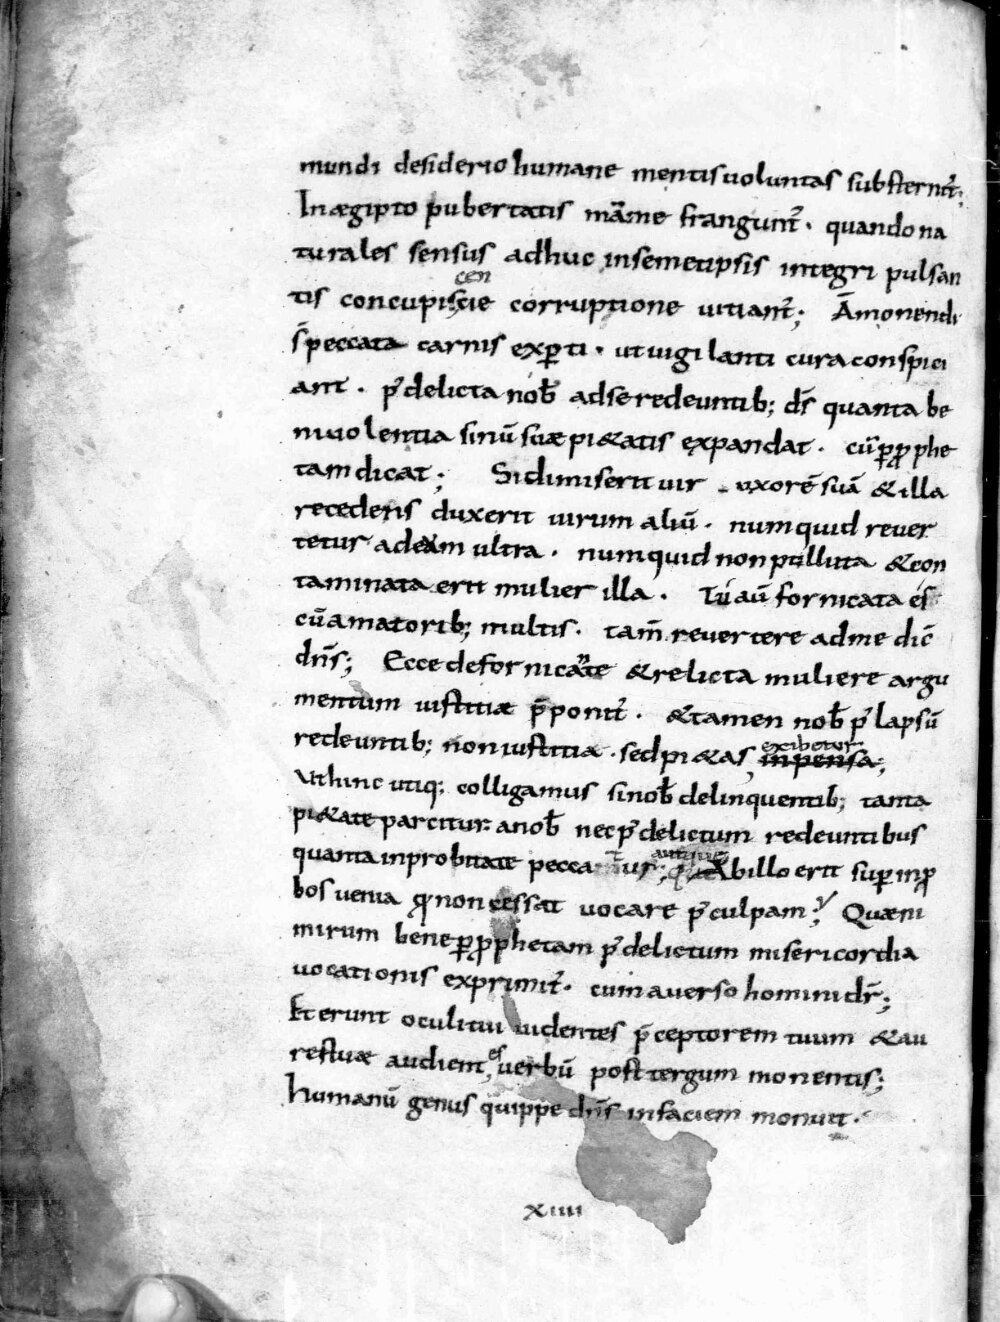 mundi desiderio humane mentis uoluntas substernit̃;
In ægipto pubertatis mãme frangunt̃· quando na
turales sensus adhuc insemetipsis integri pulsan
tis concupiscencie corruptione uitiant̃; Āmonendi
s̄ peccata carnis exꝑti· ut uigilanti cura conspici
ant· p̓ delicta nob̄ adse redeuntib; d̄s quanta be
niuolentia sinū suæ pi&atis expandat· cū ꝑ ꝓphe
tam dicat; Si dimiserit uir uxorē suā & illa
recedens duxerit uirum aliū· numquid reuer
tetur ad eam ultra· numquid non polluta & con
taminata erit mulier illa· Tu aū fornicata es
cū amatorib; multis· tam̄ reuertere ad me dic̄
dn̄s; Ecce de fornicante & relicta muliere argu
mentum iustitiæ p̄ponit̃· & tamen nob̄ p̓ lapsū
redeuntib; non iustitia· sed pi&as exibetur inpensa;
Ut hinc utiq; colligamus si nob̄ delinquentib; tanta
pi&ate parcitur· a nob̄ nec p̓ delictum redeuntibus
quanta inprobitate peccatur; Abillo erit suꝑ inꝓ
bos uenia ꝗ non cessat uocare p̓ culpam; Quæ ni
mirum bene ꝑ ꝓphetam p̓ delictum misericordia
uocationis exprimit̃· cum auerso homini dr̄;
Et erunt oculi tui uidentes p̄ceptorem tuum & au
res tuæ audientes uerbū post tergum monentis;
humanū genus quippe dn̄s in faciem monuit·
xiiii